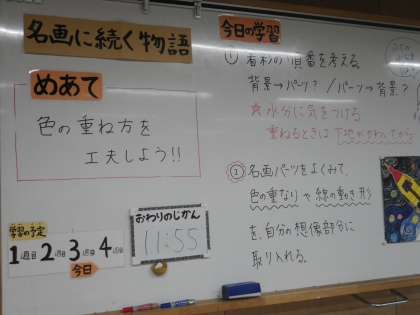 名画に続く物語
めあて
色の重ね方を
工夫しよう!!
学習の予定
1週目 2週目 3週目 4週目
今日
おわりのじかん
11:55
今日の学習
① 着彩の順番を考える。
背景→パーツ? / パーツ→背景?
☆水分に気をつける
重ねるときは下地がかわいてから
② 名画パーツをよくみて、
色の重なりや線の動き・形
を、自分の想像部分に
取り入れる。